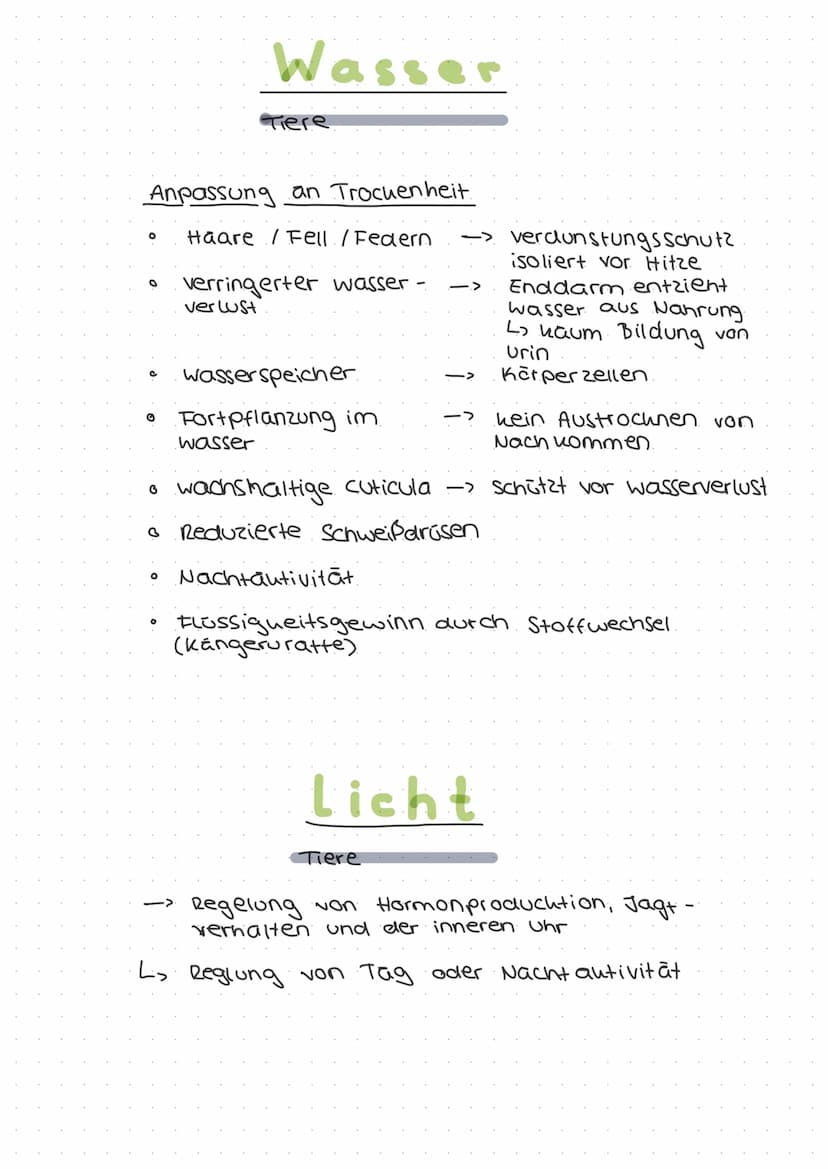 Wasser
Tiere
Anpassung an Trockenheit
• Haare / Fell / Federn → Verdunstungsschutz
isoliert vor Hitze
• verringerter Wasser- → Enddarm entzieht
verlust Wasser aus Nahrung
↳ kaum Bildung von
Urin
• Wasserspeicher → Körperzellen
• Fortpflanzung im → kein Austrocknen von
Wasser Nachkommen
• wachshaltige Cuticula → schützt vor Wasserverlust
• Reduzierte Schweißdrüsen
• Nachtaktivität
• Flüssigkeitsgewinn durch Stoffwechsel
(Kängeruratte)
Licht
Tiere
→ Regelung von Hormonproducktion, Jagt-
verhalten und der inneren Uhr
↳ Reglung von Tag oder Nachtaktivität